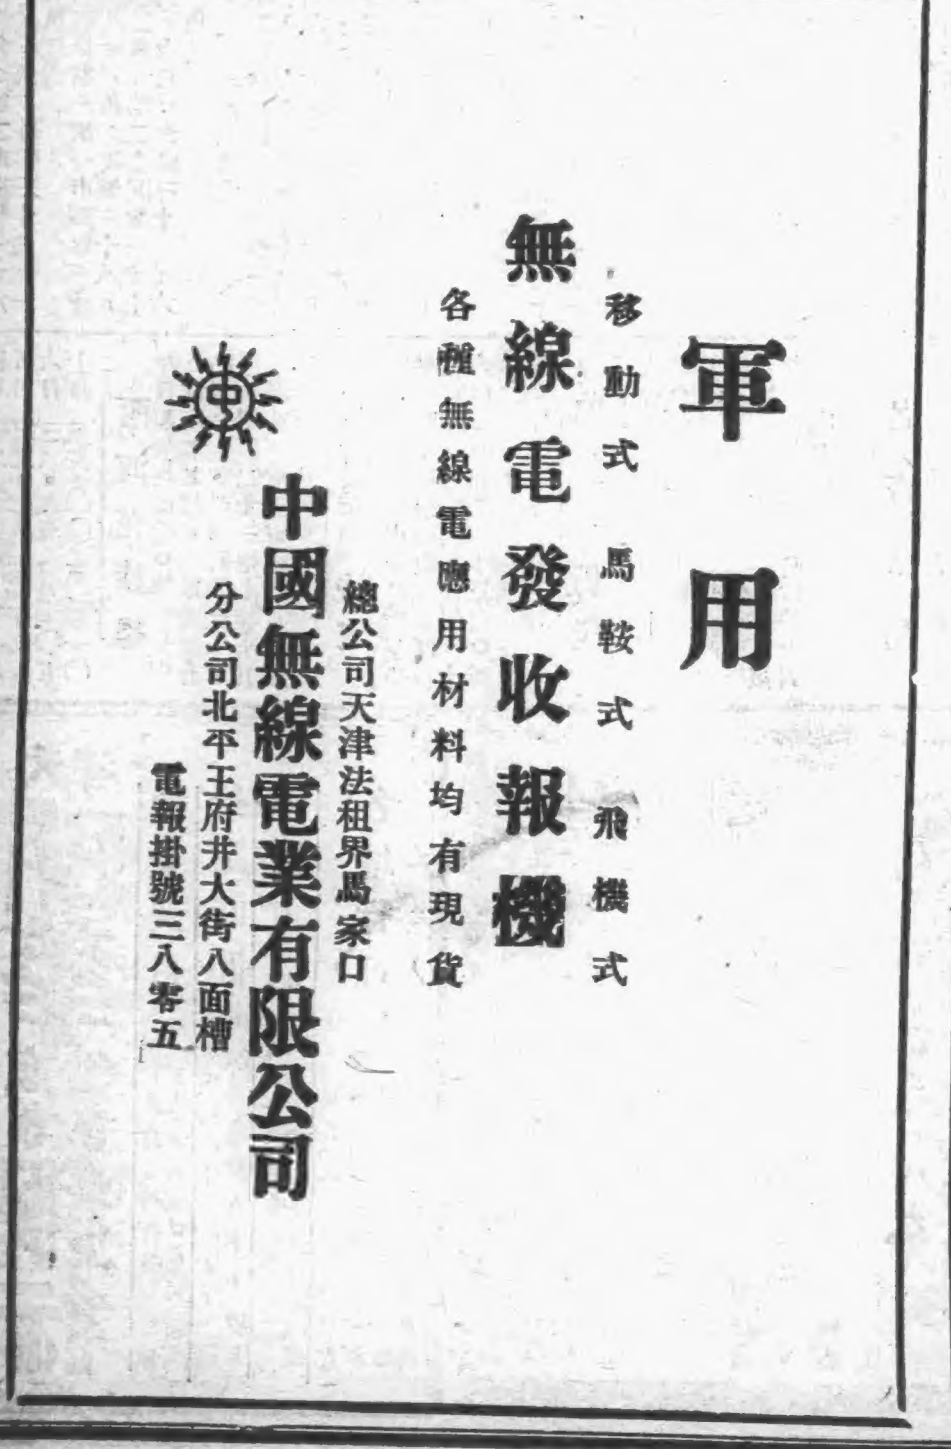 軍用
移動式 馬鞍式 飛機式
無線電發收報機
各種無線電應用材料均有現貨
總公司天津法租界馬家口
中國無線電業有限公司
分公司北平王府井大街八面槽
電報掛號三八零五
中